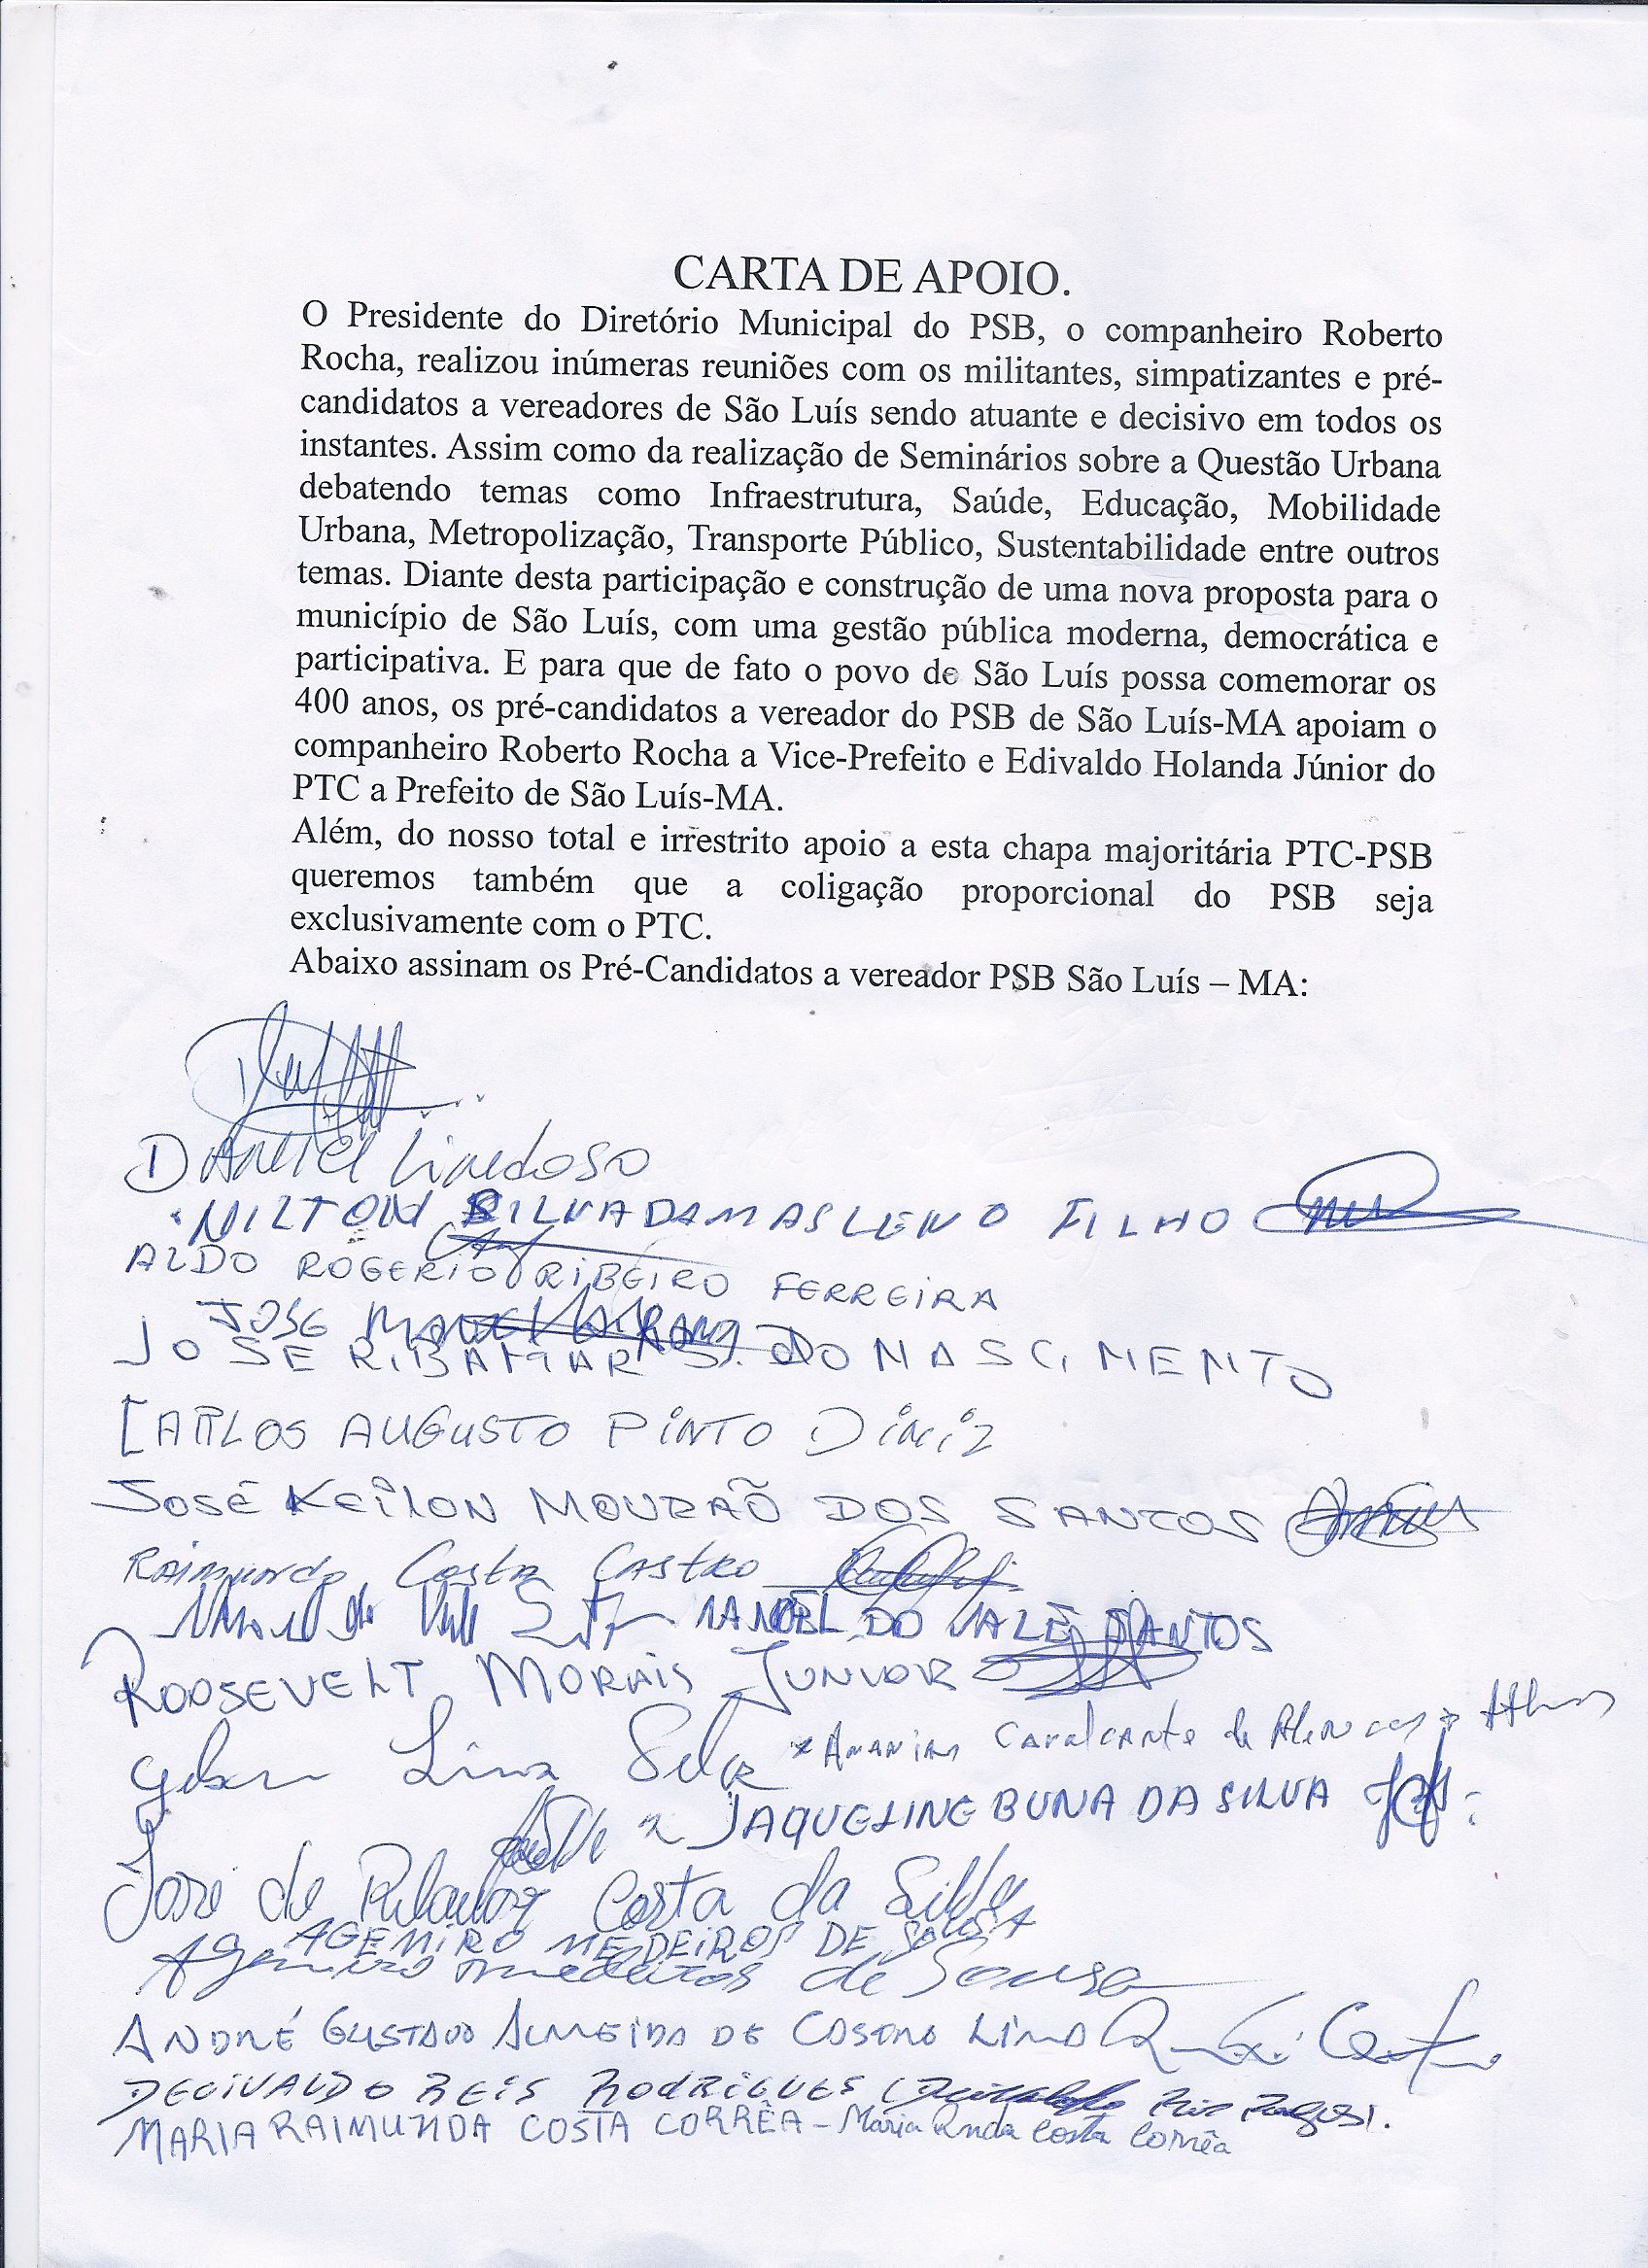 CARTA DE APOIO.
O Presidente do Diretório Municipal do PSB, o companheiro Roberto
Rocha, realizou inúmeras reuniões com os militantes, simpatizantes e pré-
candidatos a vereadores de São Luís sendo atuante e decisivo em todos os
instantes. Assim como da realização de Seminários sobre a Questão Urbana
debatendo temas como Infraestrutura, Saúde, Educação, Mobilidade
Urbana, Metropolização, Transporte Público, Sustentabilidade entre outros
temas. Diante desta participação e construção de uma nova proposta para o
município de São Luís, com uma gestão pública moderna, democrática e
participativa. E para que de fato o povo de São Luís possa comemorar os
400 anos, os pré-candidatos a vereador do PSB de São Luís-MA apoiam o
companheiro Roberto Rocha a Vice-Prefeito e Edivaldo Holanda Júnior do
PTC a Prefeito de São Luís-MA.
Além, do nosso total e irrestrito apoio a esta chapa majoritária PTC-PSB
queremos também que a coligação proporcional do PSB seja
exclusivamente com o PTC.
Abaixo assinam os Pré-Candidatos a vereador PSB São Luís – MA:
DANIEL Lindoso
NILTON SILVA DAMASCENO FILHO
ALDO ROGERIO RIBEIRO FERREIRA
JOSE
JOSE RIBAMAR S. DO NASCIMENTO
CARLOS AUGUSTO PINTO DINIZ
JOSÉ KEILON MOURÃO DOS SANTOS
RAIMUNDO Costa CASTRO
MANOEL DO VALE SANTOS
ROOSEVELT MORAIS JUNIOR
Lima Silva
Ananias Cavalcante de Alencar
JAQUELINE BUNA DA SILVA
José de Ribamar Costa da Silva
AGEMIRO MEDEIROS DE SOUSA
Agemiro medeiros de Sousa
ANDRÉ GUSTAVO ALMEIDA DE LIMA
DECIVALDO REIS RODRIGUES
MARIA RAIMUNDA COSTA CORRÊA - Maria Rmda Costa Corrêa